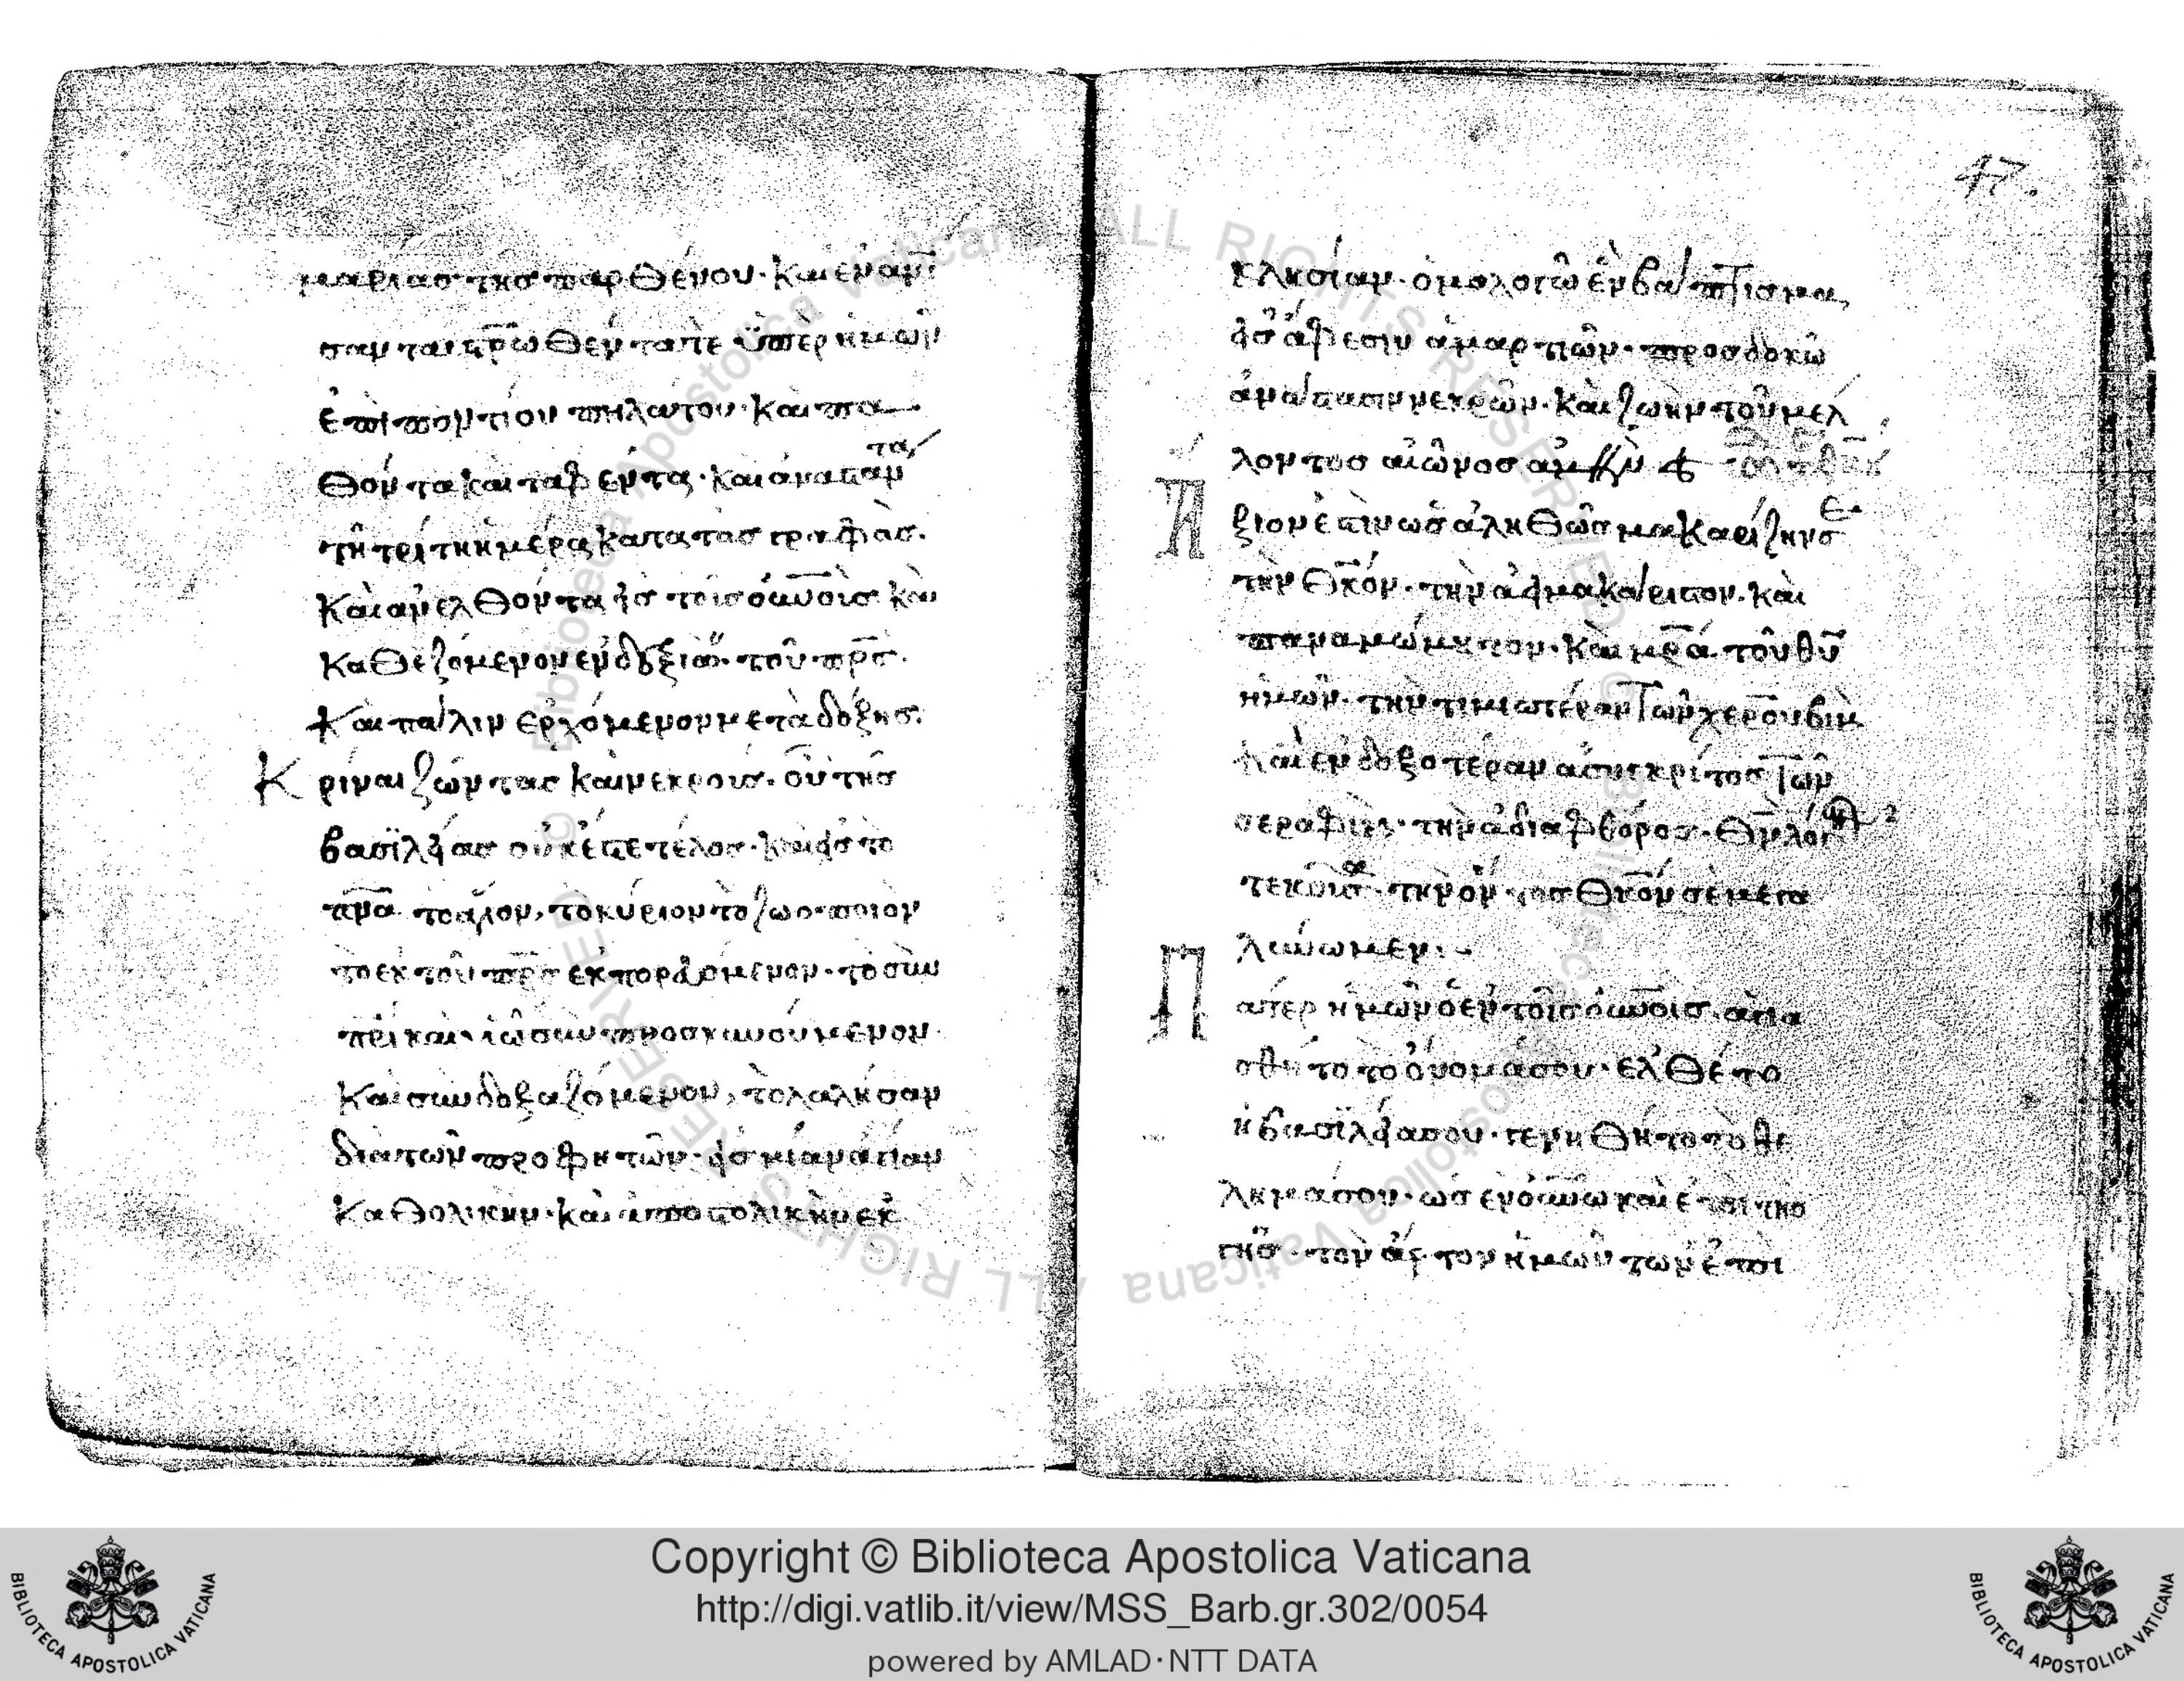 μαριασ τησ παρθένου· και ἐναν͞ι
σαντα· σ͞ρωθέντα τε ὑπὲρ ἡμῶν
ἐπὶ ποντίου πηλάτου· και πα
θόντα και ταφέντα· και ἀναστάντα
τῆ τρίτη ἡμέρα κατα τασ γραφάσ·
Και ἀνελθόντα εἰσ τοισ ὀυ͞νοισ και
καθεζόμενον εν δεξιᾶ· τοῦ π͞ρσ·
Και πάλιν ερχόμενον μετὰ δόξησ·
Κρίναι ζώντασ και νεκρουσ· οὗ τῆσ
βασϊλείασ οὐκ ἔσται τέλοσ· και εἰσ το
π͞να το ἅγιον, το κύριον το ζωοποιον
το εκ τοῦ π͞ρσ εκπορευόμενον· το συν
π͞ρι και υἱῶ συν προσκυνούμενον
Και συνδοξαζόμενον, το λαλήσαν
δια τῶν προφητῶν· εἰσ μίαν ἁγίαν
Καθολικην· και ἀποστολικὴν εκ
47.
κλησίαν· ὁμολογῶ ἓν βάπτισμα,
εἰσ ἄφεσιν ἁμαρτιῶν· προσδοκῶ
ἀνάστασιν νεκρῶν· και ζωὴν τοῦ μέλ
λοντοσ αἰῶνοσ ἀμὴν
Ἄξιον ἐστιν ὡσ ἀληθῶσ μακαρίζην σε
τὴν θ͞κον· τὴν ἀειμακάριστον· και
παναμώμητον· και μ͞ρα τοῦ θ͞υ
ἡμῶν· τὴν τιμιωτέραν τῶν χερουβιμ
και ενδοξοτέραν ἀσυγκρίτοσ τῶν
σεραφιμ· την ἀδιαφθόροσ· θ͞ν λόγον
τεκοῦσα· την ὄντοσ θ͞κον σὲ μεγα
λύνωμεν·
Πάτερ ἡμῶν ὁ εν τοῖσ ὀυ͞νοισ· ἁγια
σθήτο το ὄνομά σου· ελθέτο
ἡ βασϊλεία σου· γενηθήτο το θε
λημα σου· ὡσ εν ὀυ͞νω και ἐπι τησ
γῆσ· τον ἄρτον ἡμῶν τὼν ἐπι
Copyright © Biblioteca Apostolica Vaticana
http://digi.vatlib.it/view/MSS_Barb.gr.302/0054
powered by AMLAD·NTT DATA
BIBLIOTECA APOSTOLICA VATICANA
BIBLIOTECA APOSTOLICA VATICANA